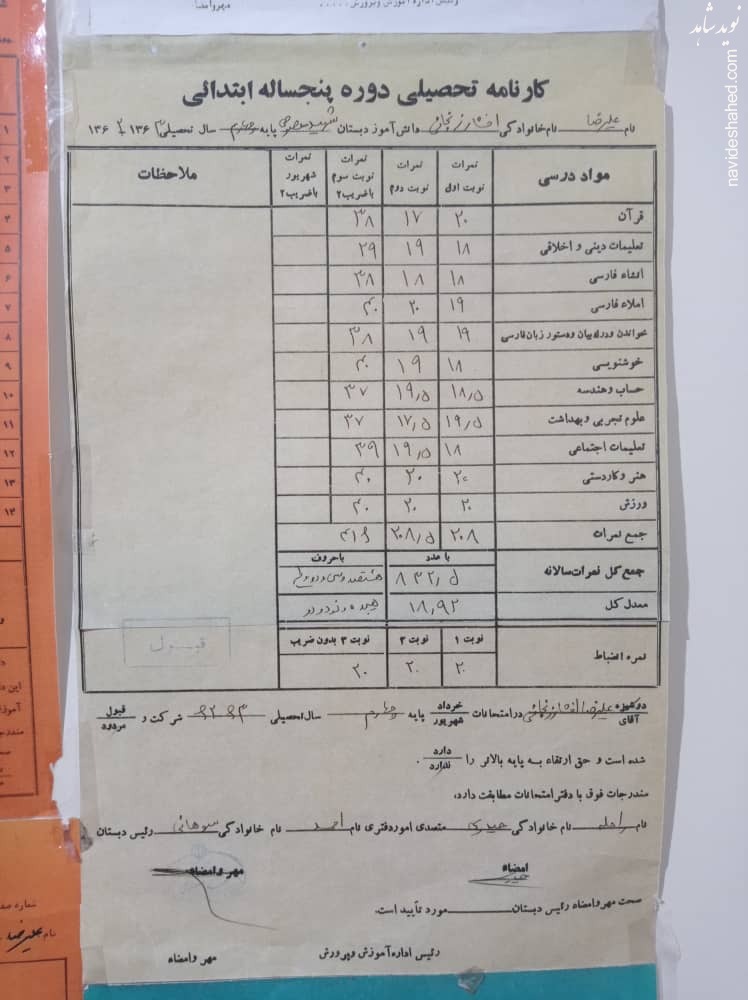 رئیس اداره آموزش و پرورش
مهر و امضاء
نوید شاهد
navideshahed.com
کارنامه تحصیلی دوره پنجساله ابتدائی
نام علیرضا نام خانوادگی دانش آموز دبستان شهید پایه چهارم سال تحصیلی ۱۳۶۳ ۱۳۶۲
مواد درسی نمرات نوبت اول نمرات نوبت دوم نمرات نوبت سوم باضریب۲ نمرات شهریور باضریب۲ ملاحظات
قرآن ۲۰ ۱۷ ۳۸
تعلیمات دینی و اخلاقی ۱۸ ۱۹ ۳۹
انشاء فارسی ۱۸ ۱۸ ۳۸
املاء فارسی ۱۹ ۲۰ ۴۰
خواندن و درک بیان و دستور زبان فارسی ۱۹ ۱۹ ۳۸
خوشنویسی ۱۸ ۱۹ ۴۰
حساب و هندسه ۱۸٫۵ ۱۹٫۵ ۳۷
علوم تجربی و بهداشت ۱۹٫۵ ۱۷٫۵ ۳۷
تعلیمات اجتماعی ۱۸ ۱۹٫۵ ۳۹
هنر و کاردستی ۲۰ ۲۰ ۴۰
ورزش ۲۰ ۲۰ ۴۰
جمع نمرات ۲۰۸ ۲۰۸٫۵ ۴۱۶
با عدد با حروف
جمع کل نمرات سالانه ۸۳۲٫۵
معدل کل ۱۸٫۹۲ هیجده و نود و دو
نوبت ۱ نوبت ۲ نوبت ۳ بدون ضریب
نمره انضباط ۲۰ ۲۰ ۲۰
قبول
دوشیزه آقای علیرضا در امتحانات خرداد شهریور پایه چهارم سال تحصیلی ۶۳-۶۲ شرکت و قبول مردود
شده است و حق ارتقاء به پایه بالاتر را دارد ندارد .
مندرجات فوق با دفتر امتحانات مطابقت دارد.
نام نام خانوادگی حیدری متصدی امور دفتری نام احمد نام خانوادگی سوهانی رئیس دبستان
امضاء مهر و امضاء
صحت مهر و امضاء رئیس دبستان مورد تأیید است.
رئیس اداره آموزش و پرورش مهر و امضاء